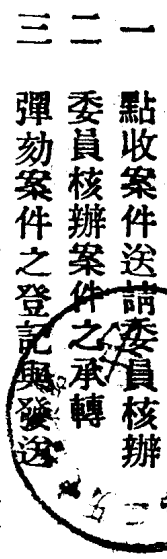 一 點收案件送請委員核辦
二 委員核辦案件之承轉
三 彈劾案件之登記與發送